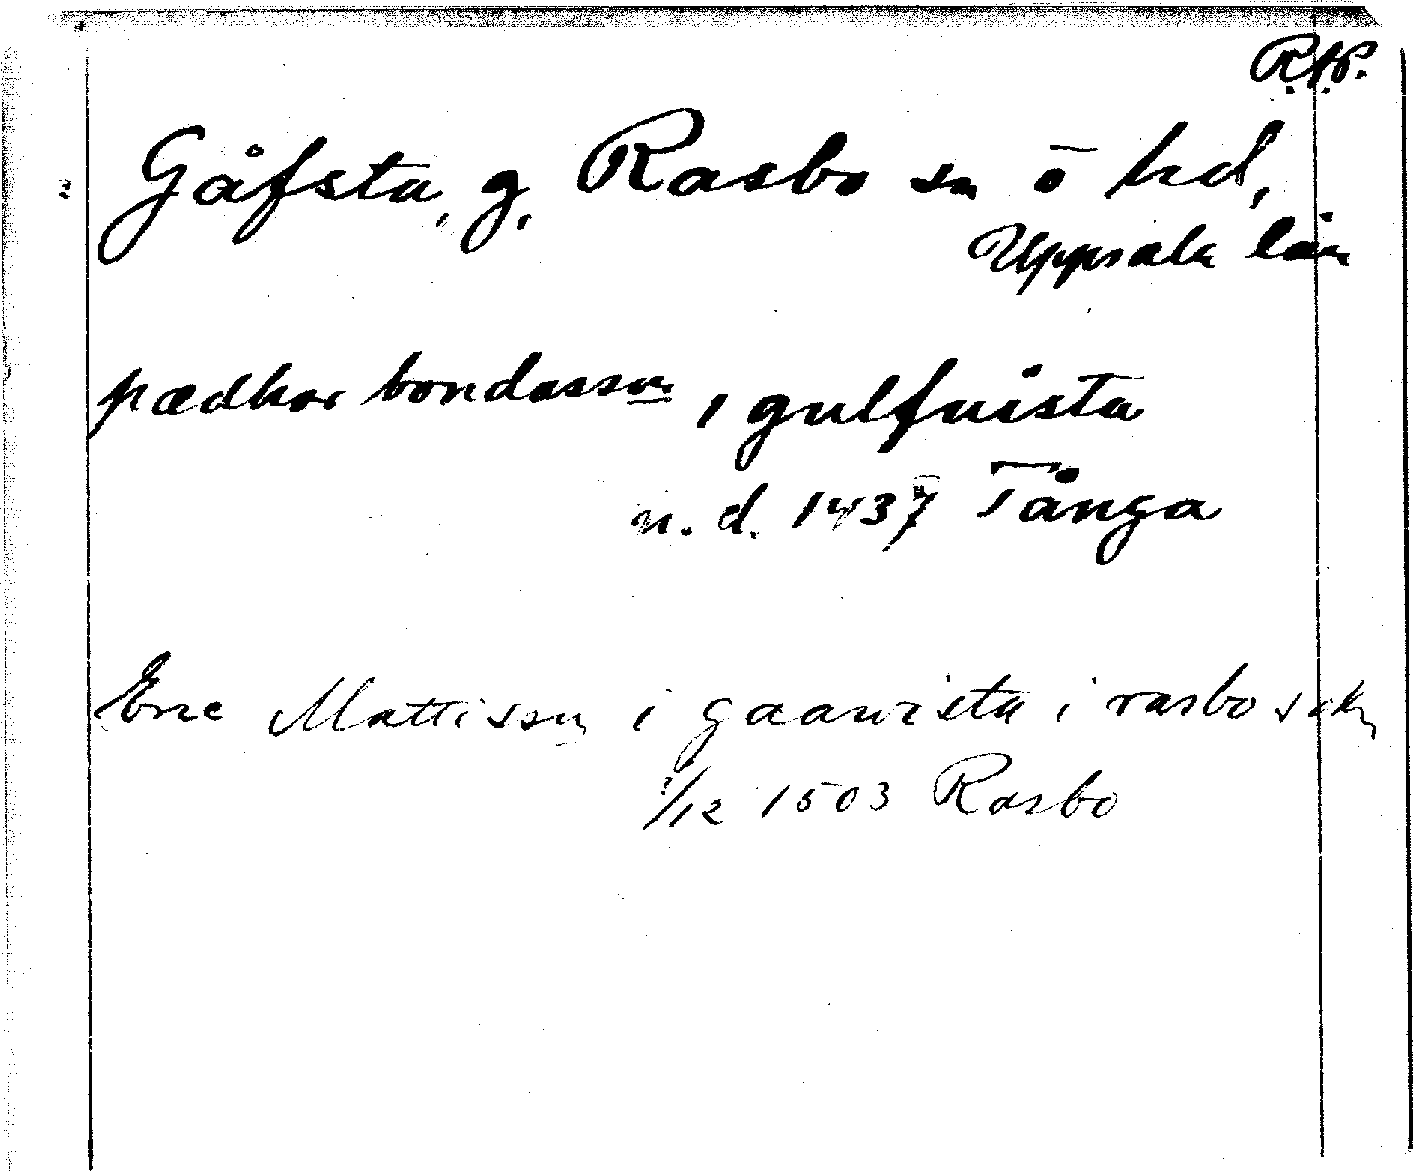 R.A.P.
Gåfsta, g. Rasbo sn o hd,
Uppsala län
pædhar bondasson, i gulfuista
n.d. 1437 Tånga
Eric Mattisson i gaawista i rasbo sokn
1/12 1503 Rasbo